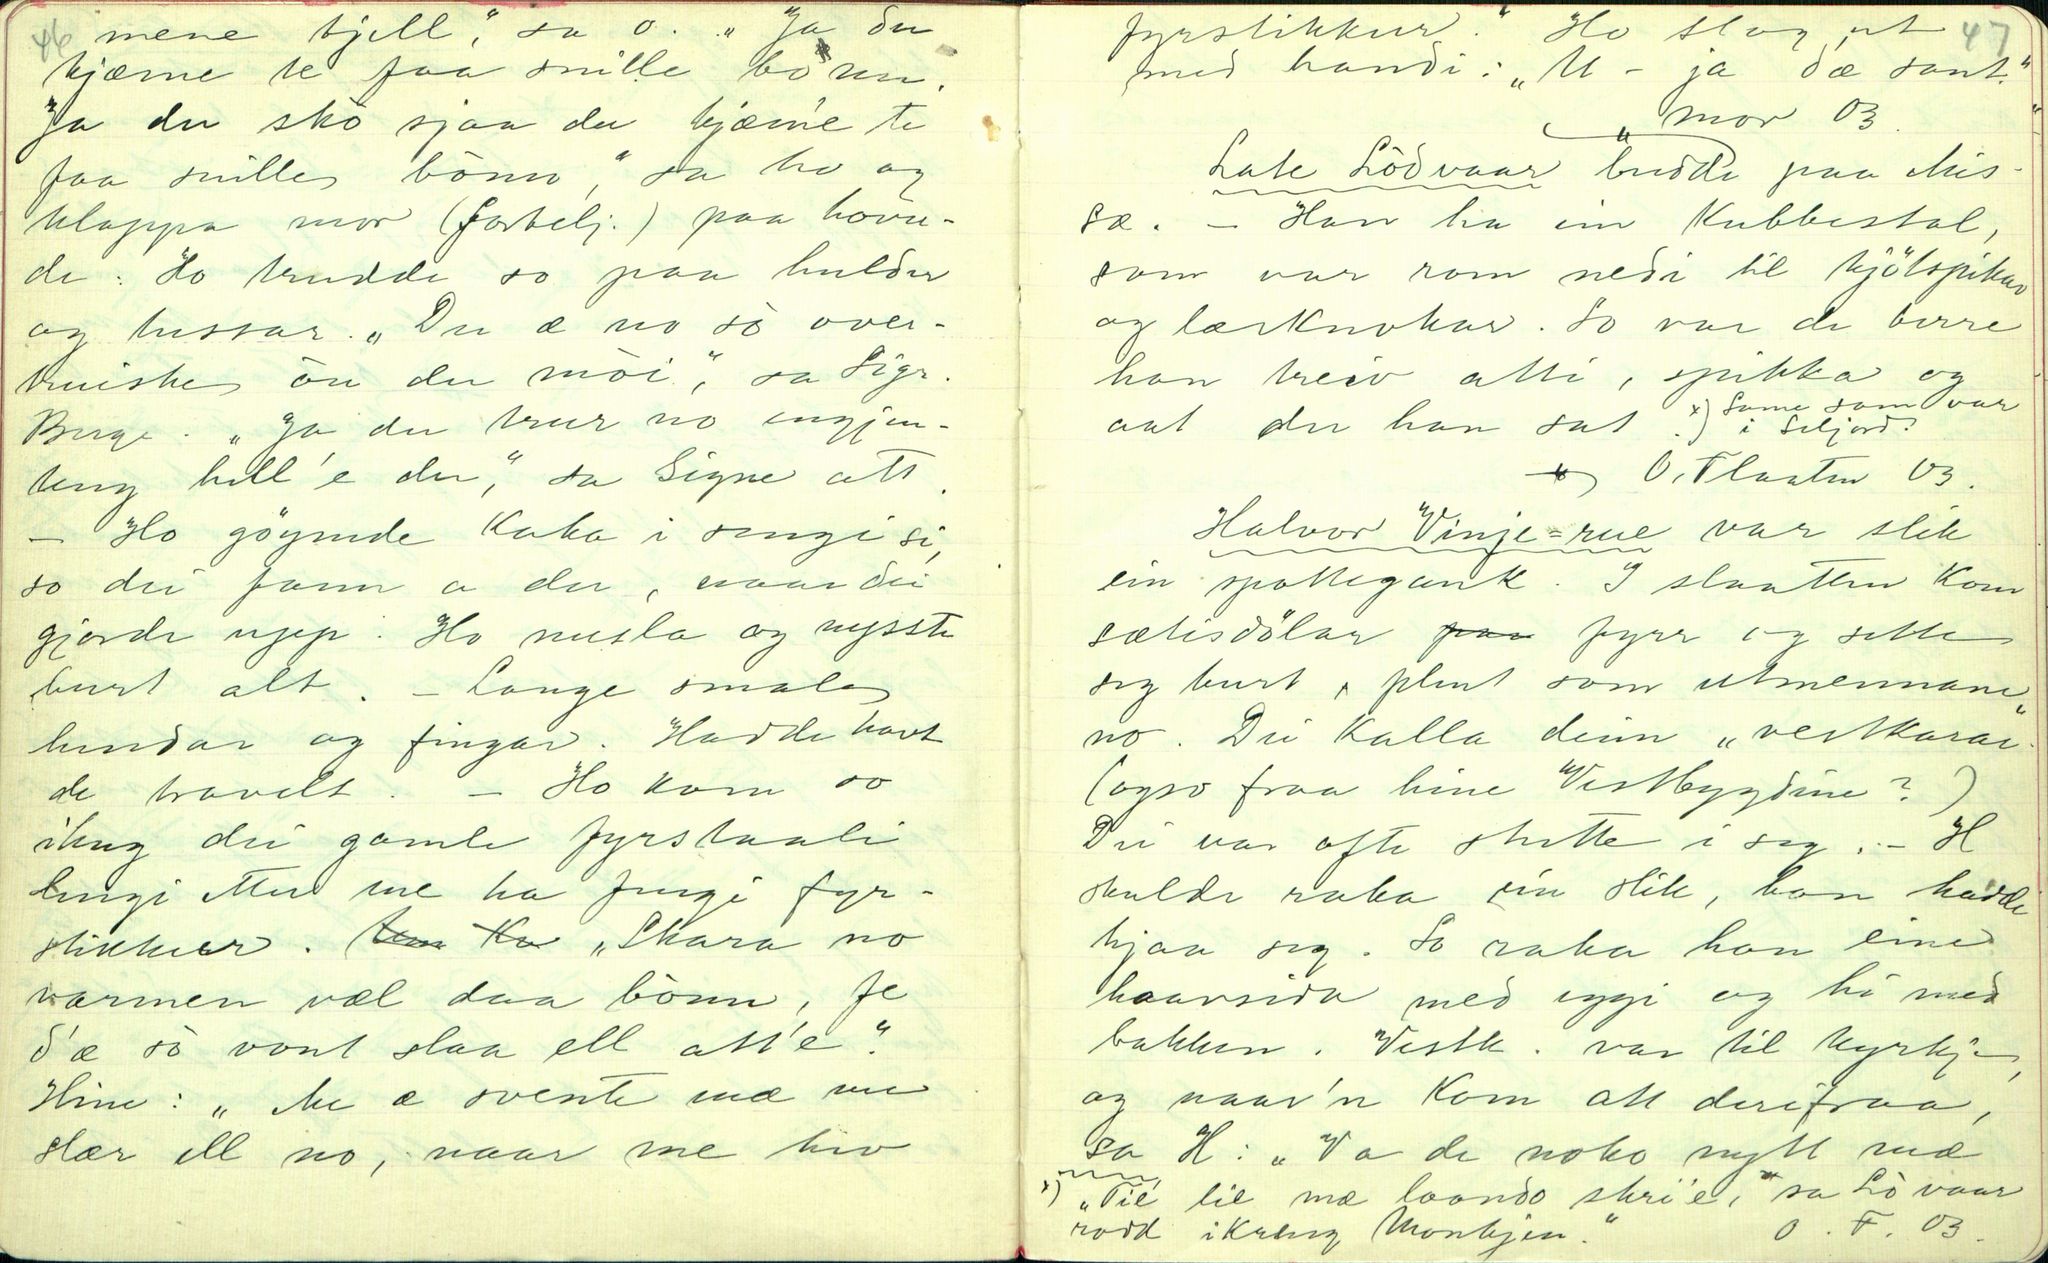 46
mene kjell," sa o. "Ja du
kjæme te faa snille bonn.
"Ja du sko sjaa du kjæm'e te
faa snille bonn," sa ho og
klappa mor (fortelj.) paa hovu-
de. Ho trudde so paa hulder
og tussar. "Du æ no so over-
truiske on du moi," sa Sigr.
Berge. "Ja du trur no ingjen-
ting hell'e du," sa Signe att.
- Ho göymde kaka i sengi si,
so dei fann a der, naar dei
gjorde upp. Ho nusla og nysste
burt alt. - Lange smale
hendar og fingar. Hadde havt
de travelt. - Ho kom so
ihug dei gamle fyrstaali
lengi etter me ha fengi fyr-
stikkur. "Skara no
varmen væl daa bonn, fe
d'æ so vont slaa ell att'e."
Hine: "Me æ svente mæ me
slær ell no, naar me hev
47
fyrstikkur." Ho slog ut
med handi: "U - ja dæ sant."
mor 03.
Late Lödvaar budde paa Mis-
sæ. - Han ha ein kubbestol,
som var rom nedi til kjötspikar
og lærknokar. So var de berre
han treiv atti, spikka og
aat der han sat. x) Same som var
i Seljord?
O. Flaaten 03.
Halvor Vinje=rue var slik
ein spottegauk. I slaatten kom
sætisdölar paa fyrr og sette
seg burt, plent som utmennane
no. Dei kalla deim "vestkarar"
(ogso fraa hine Vestbygdine?)
Dei var ofte stutte i seg. - H
skulde raka ein slik, han hadde
hjaa seg. So raka han eine
haarsida med eggi og hi med
bakken. Vestk. var til kyrkje,
og naar'n kom att derifraa,
sa H: "Va de noko nytt mæ
x) "Tie lie mæ laando skri'e," sa Lövaar
rodd ikring Monkjen." O. F. 03.